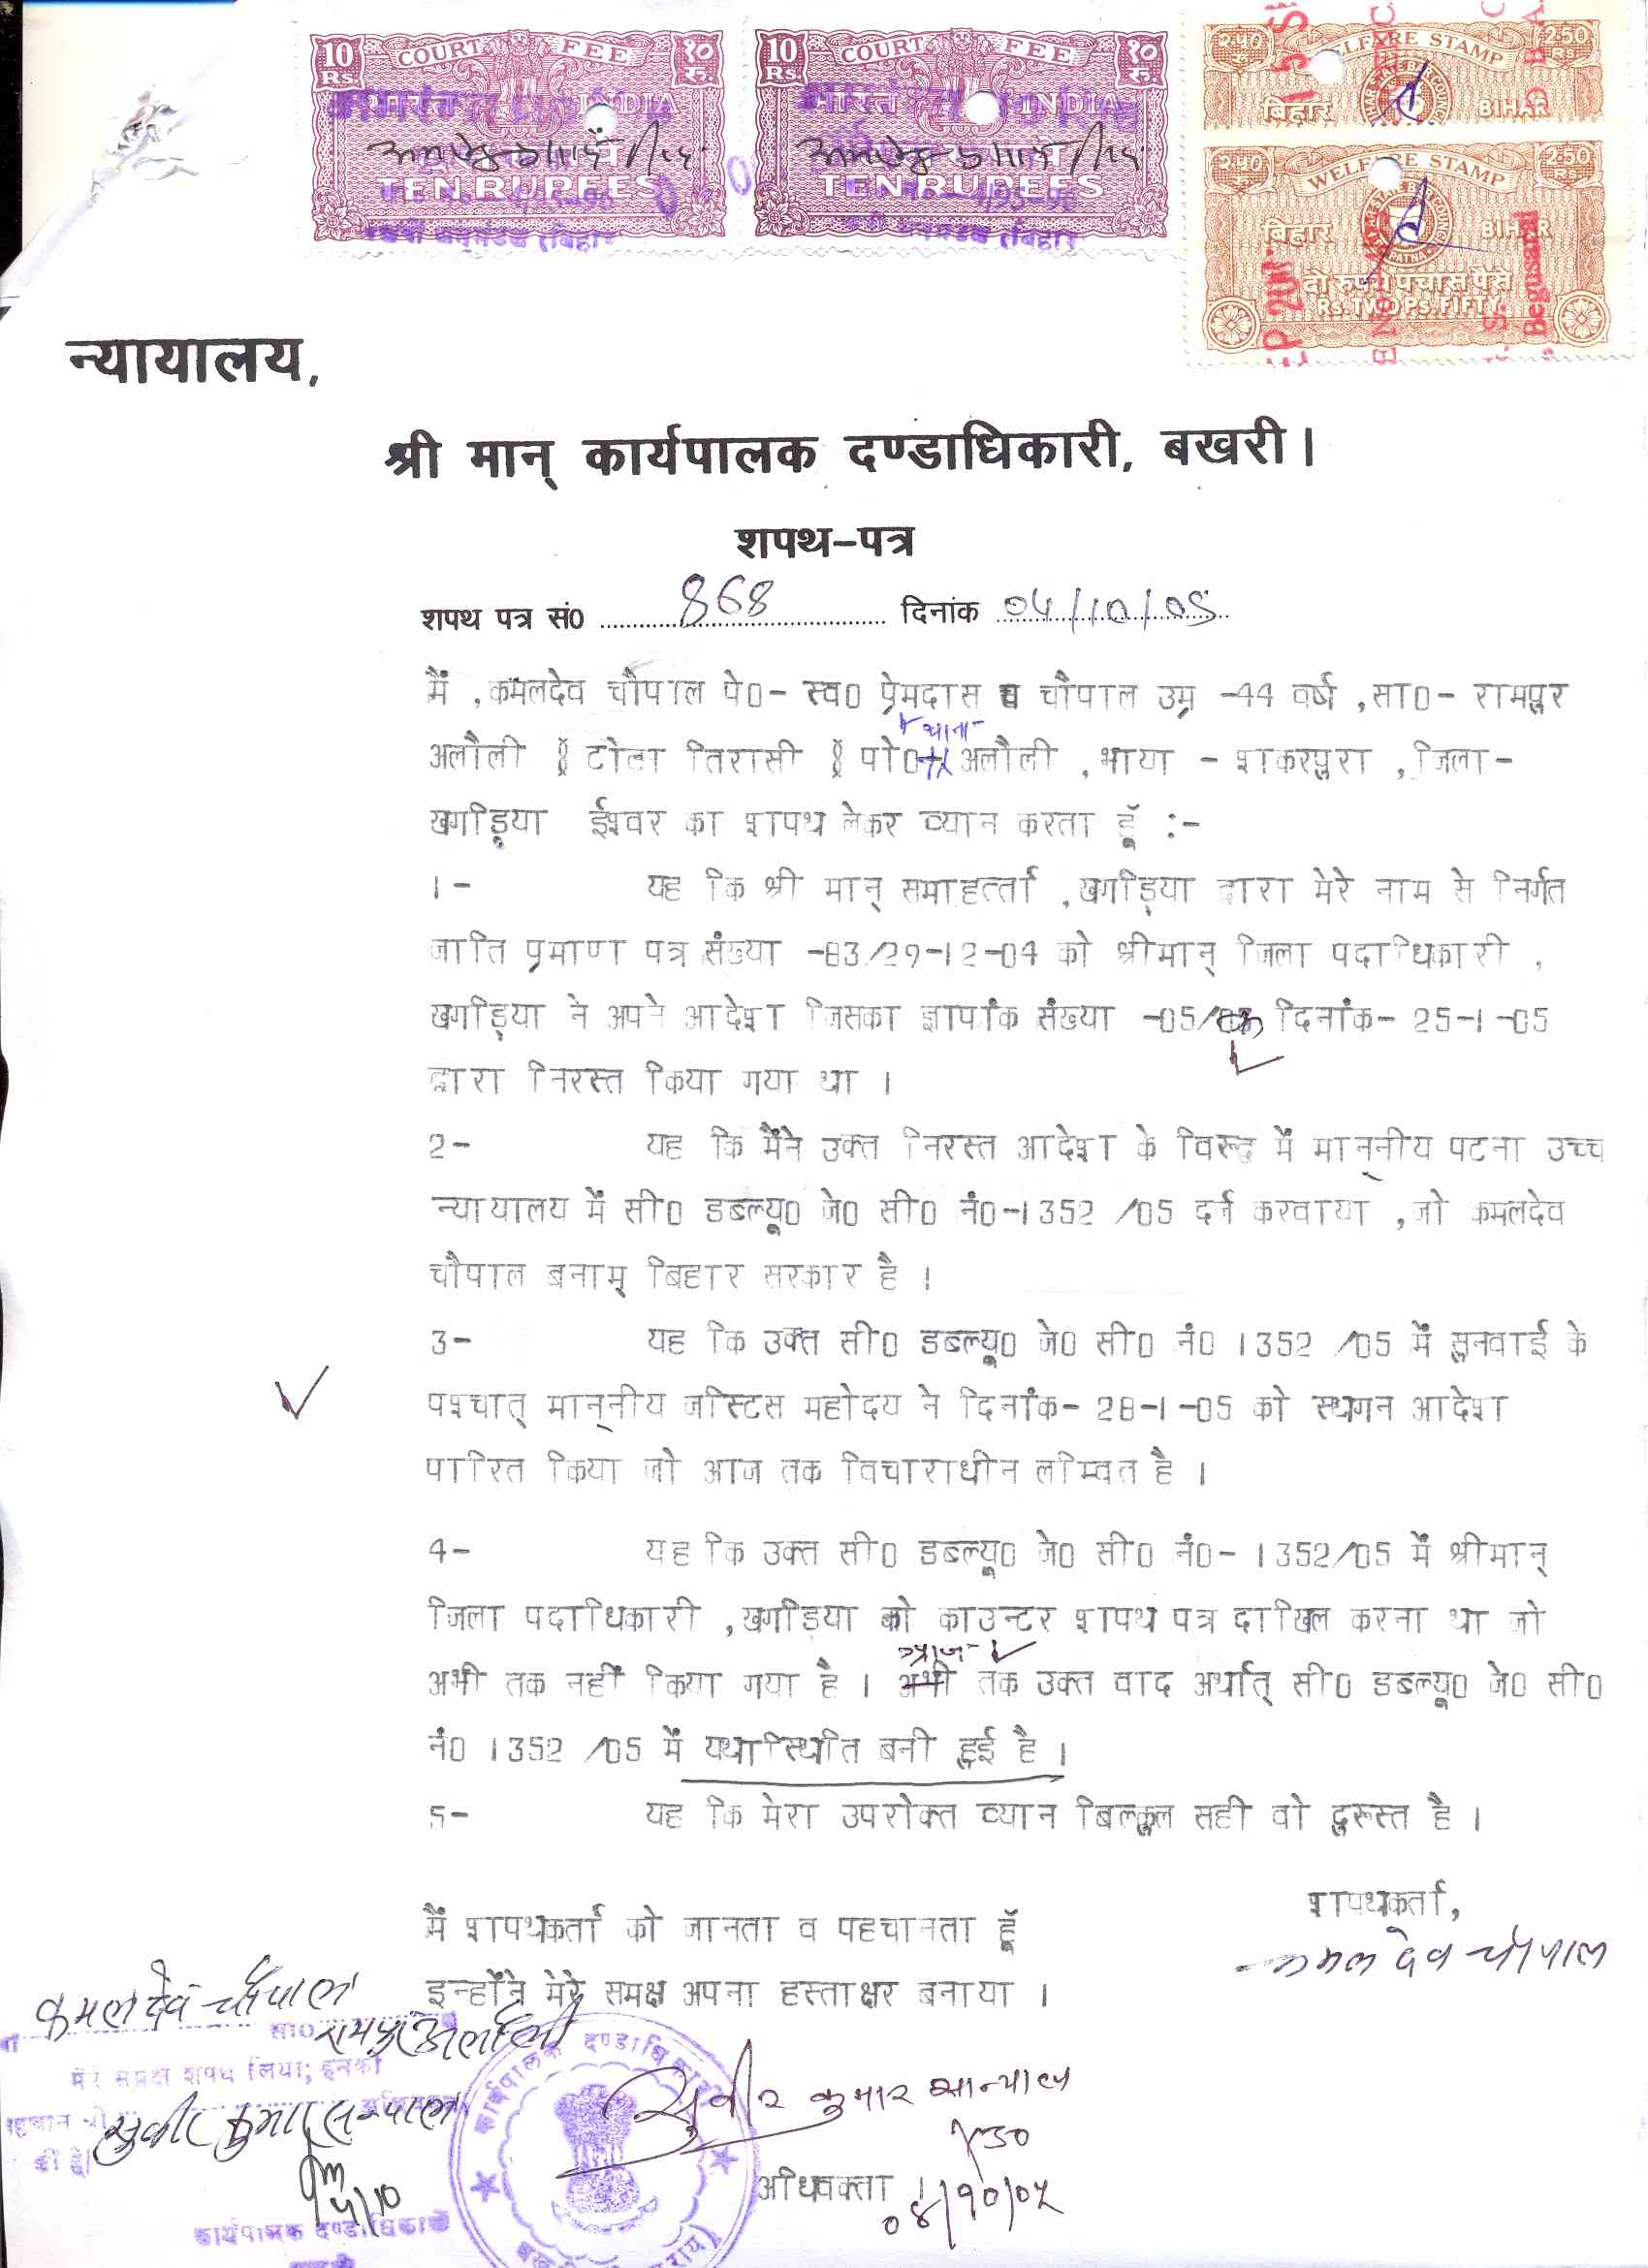 10 COURT FEE १०
Rs. रु.
भारत INDIA
TEN RUPEES
10 COURT FEE १०
Rs. रु.
भारत INDIA
TEN RUPEES
२५० WELFARE STAMP 250
बिहार BIHAR
२५० WELFARE STAMP 250
बिहार BIHAR
दो रुपये पचास पैसे
RS. TWO PS. FIFTY
Begusarai
न्यायालय,
श्री मान् कार्यपालक दण्डाधिकारी, बखरी।
शपथ-पत्र
शपथ पत्र सं० 868 दिनांक 04/10/05
मैं ,कमलदेव चौपाल पे०- स्व० प्रेमदास चौपाल उम्र -44 वर्ष ,सा०- रामपुर
थाना-
अलौली टोला तिरासी पो० अलौली , भाया - शकरपुरा , जिला-
खगड़िया ईश्वर का शपथ लेकर व्यान करता हूँ :-
1- यह कि श्री मान् समाहर्त्ता ,खगड़िया द्वारा मेरे नाम से निर्गत
जाति प्रमाण पत्र संख्या -83/29-12-04 को श्रीमान् जिला पदाधिकारी ,
खगड़िया ने अपने आदेश जिसका ज्ञापांक संख्या -05/ दिनांक- 25-1-05
द्वारा निरस्त किया गया था ।
2- यह कि मैंने उक्त निरस्त आदेश के विरूद्ध में मान्नीय पटना उच्च
न्यायालय में सी० डब्ल्यू० जे० सी० नं०-1352 /05 दर्ज करवाया ,जो कमलदेव
चौपाल बनाम् बिहार सरकार है ।
3- यह कि उक्त सी० डब्ल्यू० जे० सी० नं० 1352 /05 में सुनवाई के
पश्चात् मान्नीय जस्टिस महोदय ने दिनांक- 28-1-05 को स्थगन आदेश
पारित किया जो आज तक विचाराधीन लम्वित है ।
4- यह कि उक्त सी० डब्ल्यू० जे० सी० नं०- 1352/05 में श्रीमान्
जिला पदाधिकारी ,खगड़िया को काउन्टर शपथ पत्र दाखिल करना था जो
आज-
अभी तक नहीं किया गया है । अभी तक उक्त वाद अर्थात् सी० डब्ल्यू० जे० सी०
नं० 1352 /05 में यथास्थिति बनी हुई है ।
5- यह कि मेरा उपरोक्त व्यान बिल्कुल सही वो दुरूस्त है ।
शपथकर्ता,
कमल देव चौपाल
मैं शपथकर्ता को जानता व पहचानता हूँ
इन्होंने मेरे समक्ष अपना हस्ताक्षर बनाया ।
कमल देव चौपाल
सा० रामपुर अलौली
मेरे समक्ष शपथ लिया; इनकी
सुवीर कुमार सान्याल
की है।
4/10
कार्यपालक दण्डाधिकारी
कार्यपालक दण्डाधिकारी
सुवीर कुमार सान्याल
अधिवक्ता ।
04/10/05